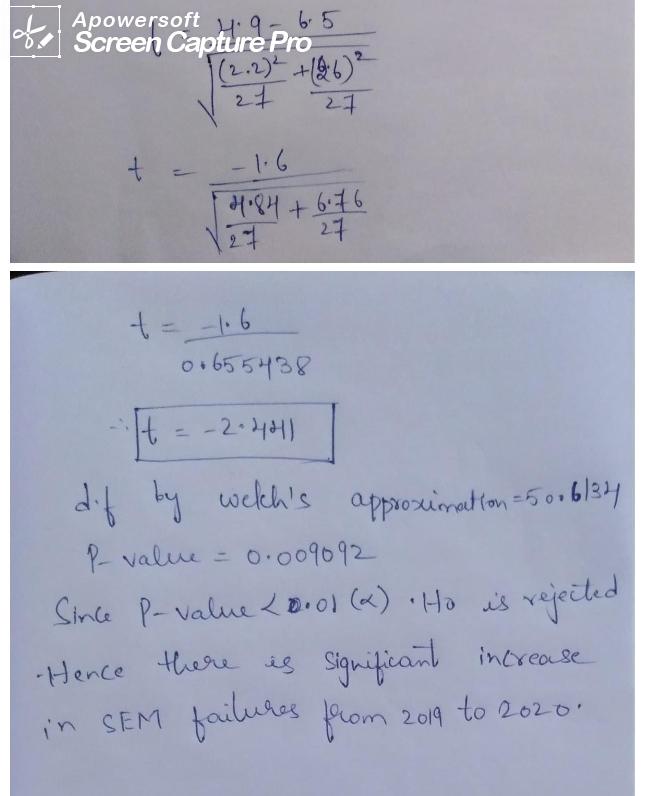 Apowersoft
Screen Capture Pro
t = 4.9 - 6.5
√ (2.2)² / 27 + (2.6)² / 27
t = -1.6
√ 4.84 / 27 + 6.76 / 27
t = -1.6
0.655438
∴ t = -2.441
d.f by welch's approximation = 50.6134
P- value = 0.009092
Since P- value < 0.01 (α) . H0 is rejected
. Hence there is significant increase
in SEM failures from 2019 to 2020.